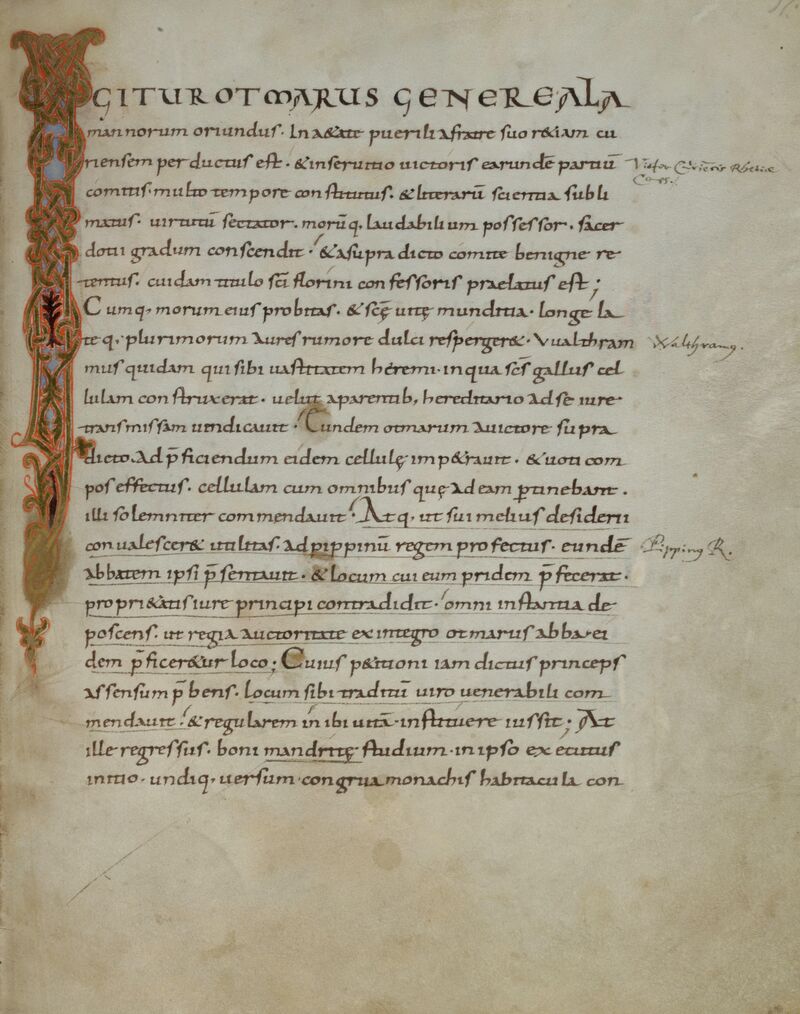 IGITUR OTMARUS GENERE ALA
mannorum oriundus. In aetate puerili a fratre suo r&iam cu
riensem perductus est. & in seruitio uictoris earundē partiū
comitis. multo tempore constitutus. & litterarū scientia subli
matus. uirtutū sectator. morūq, laudabilium possessor. sacer
dotii gradum conscendit. & a supra dicto comite benigne re
tentus. cuidam titulo sc̄i florini confessoris praelatus est;
Cumq, morum eius probitas. & sc̄ę uitę munditia. longe la
teq, plurimorum aures rumore dulci resperger&. Vualthram
mus quidam qui sibi uastitatem heremi. in qua sc̄s gallus cel
lulam construxerat. uelut a parentib, hereditario ad se iure
transmissam uendicauit. Eundem otmarum a uictore supra
dicto. Ad p̄ficiendum eidem cellulę imp&rauit. & uoti com
pos effectus. cellulam cum omnibus quę ad eam ꝑtinebant.
illi solemniter commendauit. Atq, ut sui melius desiderii
conualescer& utilitas. ad pippinū regem profectus. eundē
abbatem ipsi p̄sentauit. & locum cui eum pridem p̄fecerat.
propri&atis iure principi contradidit. omni instantia de
poscens. ut regia auctoritate ex integro otmarus abba ei
dem p̄ficer&ur loco; Cuius p&itioni iam dictus princeps
assensum p̄bens. locum sibi traditū uiro uenerabili com
mendauit. & regularem inibi uitā. instituere iussit; At
ille regressus. boni mandritę studium. in ipso executus
initio. undiq, uersum. congrua monachis habitacula con
Victor Curiensis Rhetiae
Comes.
Walthramg.
Pipping R.